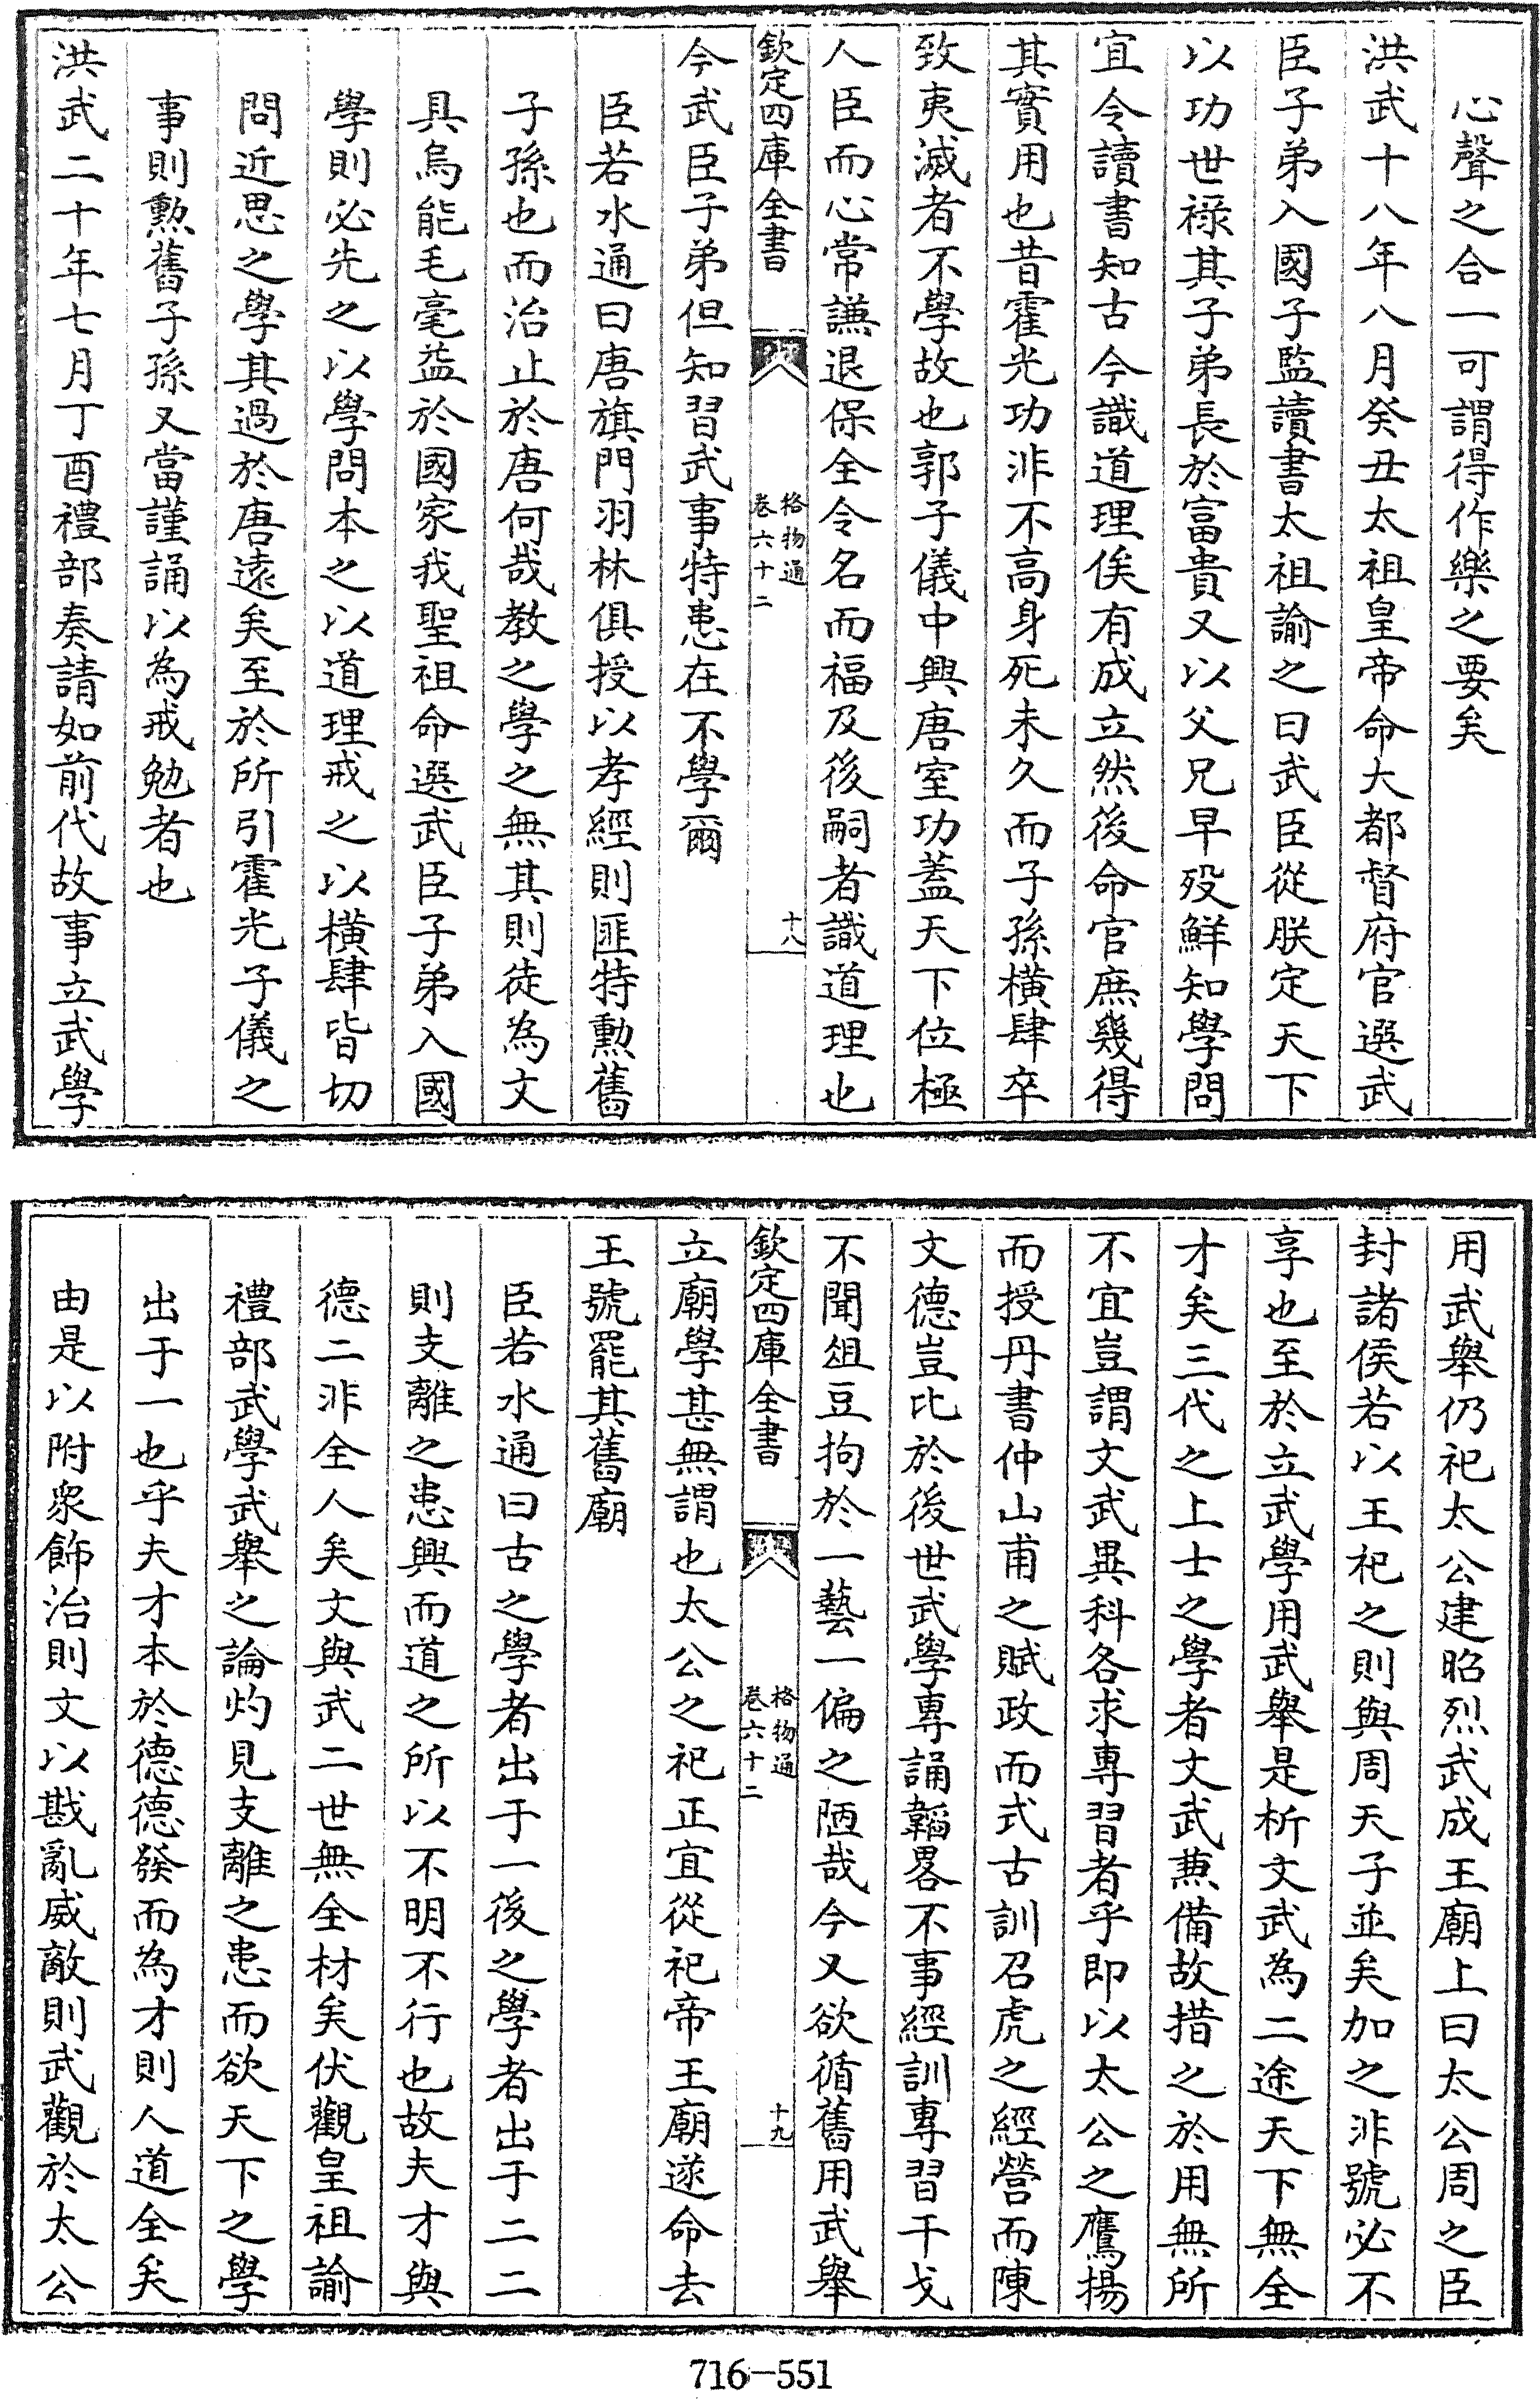 心聲之合一可謂得作樂之要矣
洪武十八年八月癸丑太祖皇帝命大都督府官選武
臣子弟入國子監讀書太祖諭之曰武臣從朕定天下
以功世祿其子弟長於富貴又以父兄早歿鮮知學問
宜令讀書知古今識道理俟有成立然後命官庶幾得
其實用也昔霍光功非不高身死未久而子孫橫肆卒
致夷滅者不學故也郭子儀中興唐室功蓋天下位極
人臣而心常謙退保全令名而福及後嗣者識道理也
欽定四庫全書
格物通
卷六十二
十八
今武臣子弟但知習武事特患在不學爾
臣若水通曰唐旗門羽林俱授以孝經則匪特勲舊
子孫也而治止於唐何哉教之學之無其則徒為文
具烏能毛毫益於國家我聖祖命選武臣子弟入國
學則必先之以學問本之以道理戒之以橫肆皆切
問近思之學其過於唐遠矣至於所引霍光子儀之
事則勲舊子孫又當謹誦以為戒勉者也
洪武二十年七月丁酉禮部奏請如前代故事立武學
用武舉仍祀太公建昭烈武成王廟上曰太公周之臣
封諸侯若以王祀之則與周天子並矣加之非號必不
享也至於立武學用武舉是析文武為二途天下無全
才矣三代之上士之學者文武兼備故措之於用無所
不宜豈謂文武異科各求專習者乎即以太公之鷹揚
而授丹書仲山甫之賦政而式古訓召虎之經營而陳
文德豈比於後世武學專誦韜畧不事經訓專習干戈
不聞俎豆拘於一藝一偏之陋哉今又欲循舊用武舉
欽定四庫全書
格物通
卷六十二
十九
立廟學甚無謂也太公之祀正宜從祀帝王廟遂命去
王號罷其舊廟
臣若水通曰古之學者出于一後之學者出于二二
則支離之患興而道之所以不明不行也故夫才與
德二非全人矣文與武二世無全材矣伏觀皇祖諭
禮部武學武舉之論灼見支離之患而欲天下之學
出于一也乎夫才本於德德發而為才則人道全矣
由是以附衆飾治則文以戡亂威敵則武觀於太公
716-551